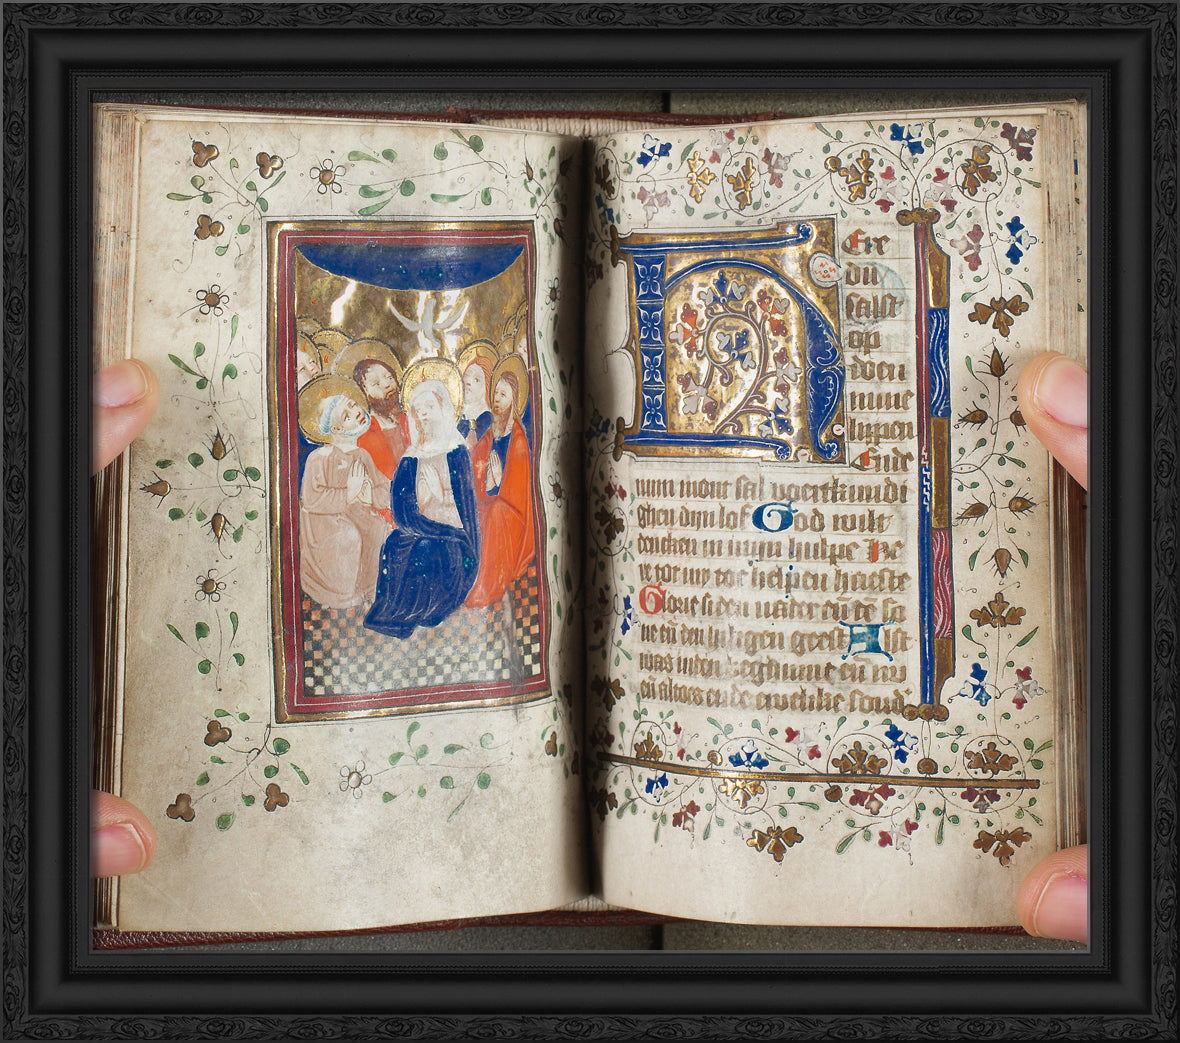 Ere
du
salst
op
doen
mine
lippen
Ende
mijn mont sal voertkundi
ghen dijn lof God wilt
dencken in mijn hulpe He
re tot my toe helpen haeste
Glorie si den vader en̄ de̅ so
ne en̄ den heilighen geest Alst
was inden beghinne en̄ nu
en̄ altoes ende ewelike Soud